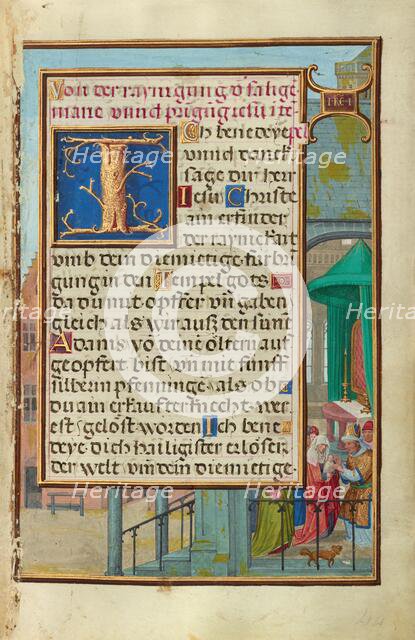 Von der raynigung d' salige
marie vnnd
Ich benedeye
vnnd danck
sage dir herr
Jesu Christe
ain erfinder
der raynickait
vmb dein diemietige fürbri
gung in den Tempel gots
da du mit opffer vn̄ gaben
gleich als wir auß den sunt
Adams vō deine öltern auf
geopfert bist vn̄ mit fünff
silbern pfenninge als ob
du ain erkaufter knecht wer
est gelöst worden Ich bene
deye dich hailigister erlöser
der welt vm̄ dein diemietige
Heritage
Heritage
Heritage
Heritage
Heritage
Heritage
Heritage